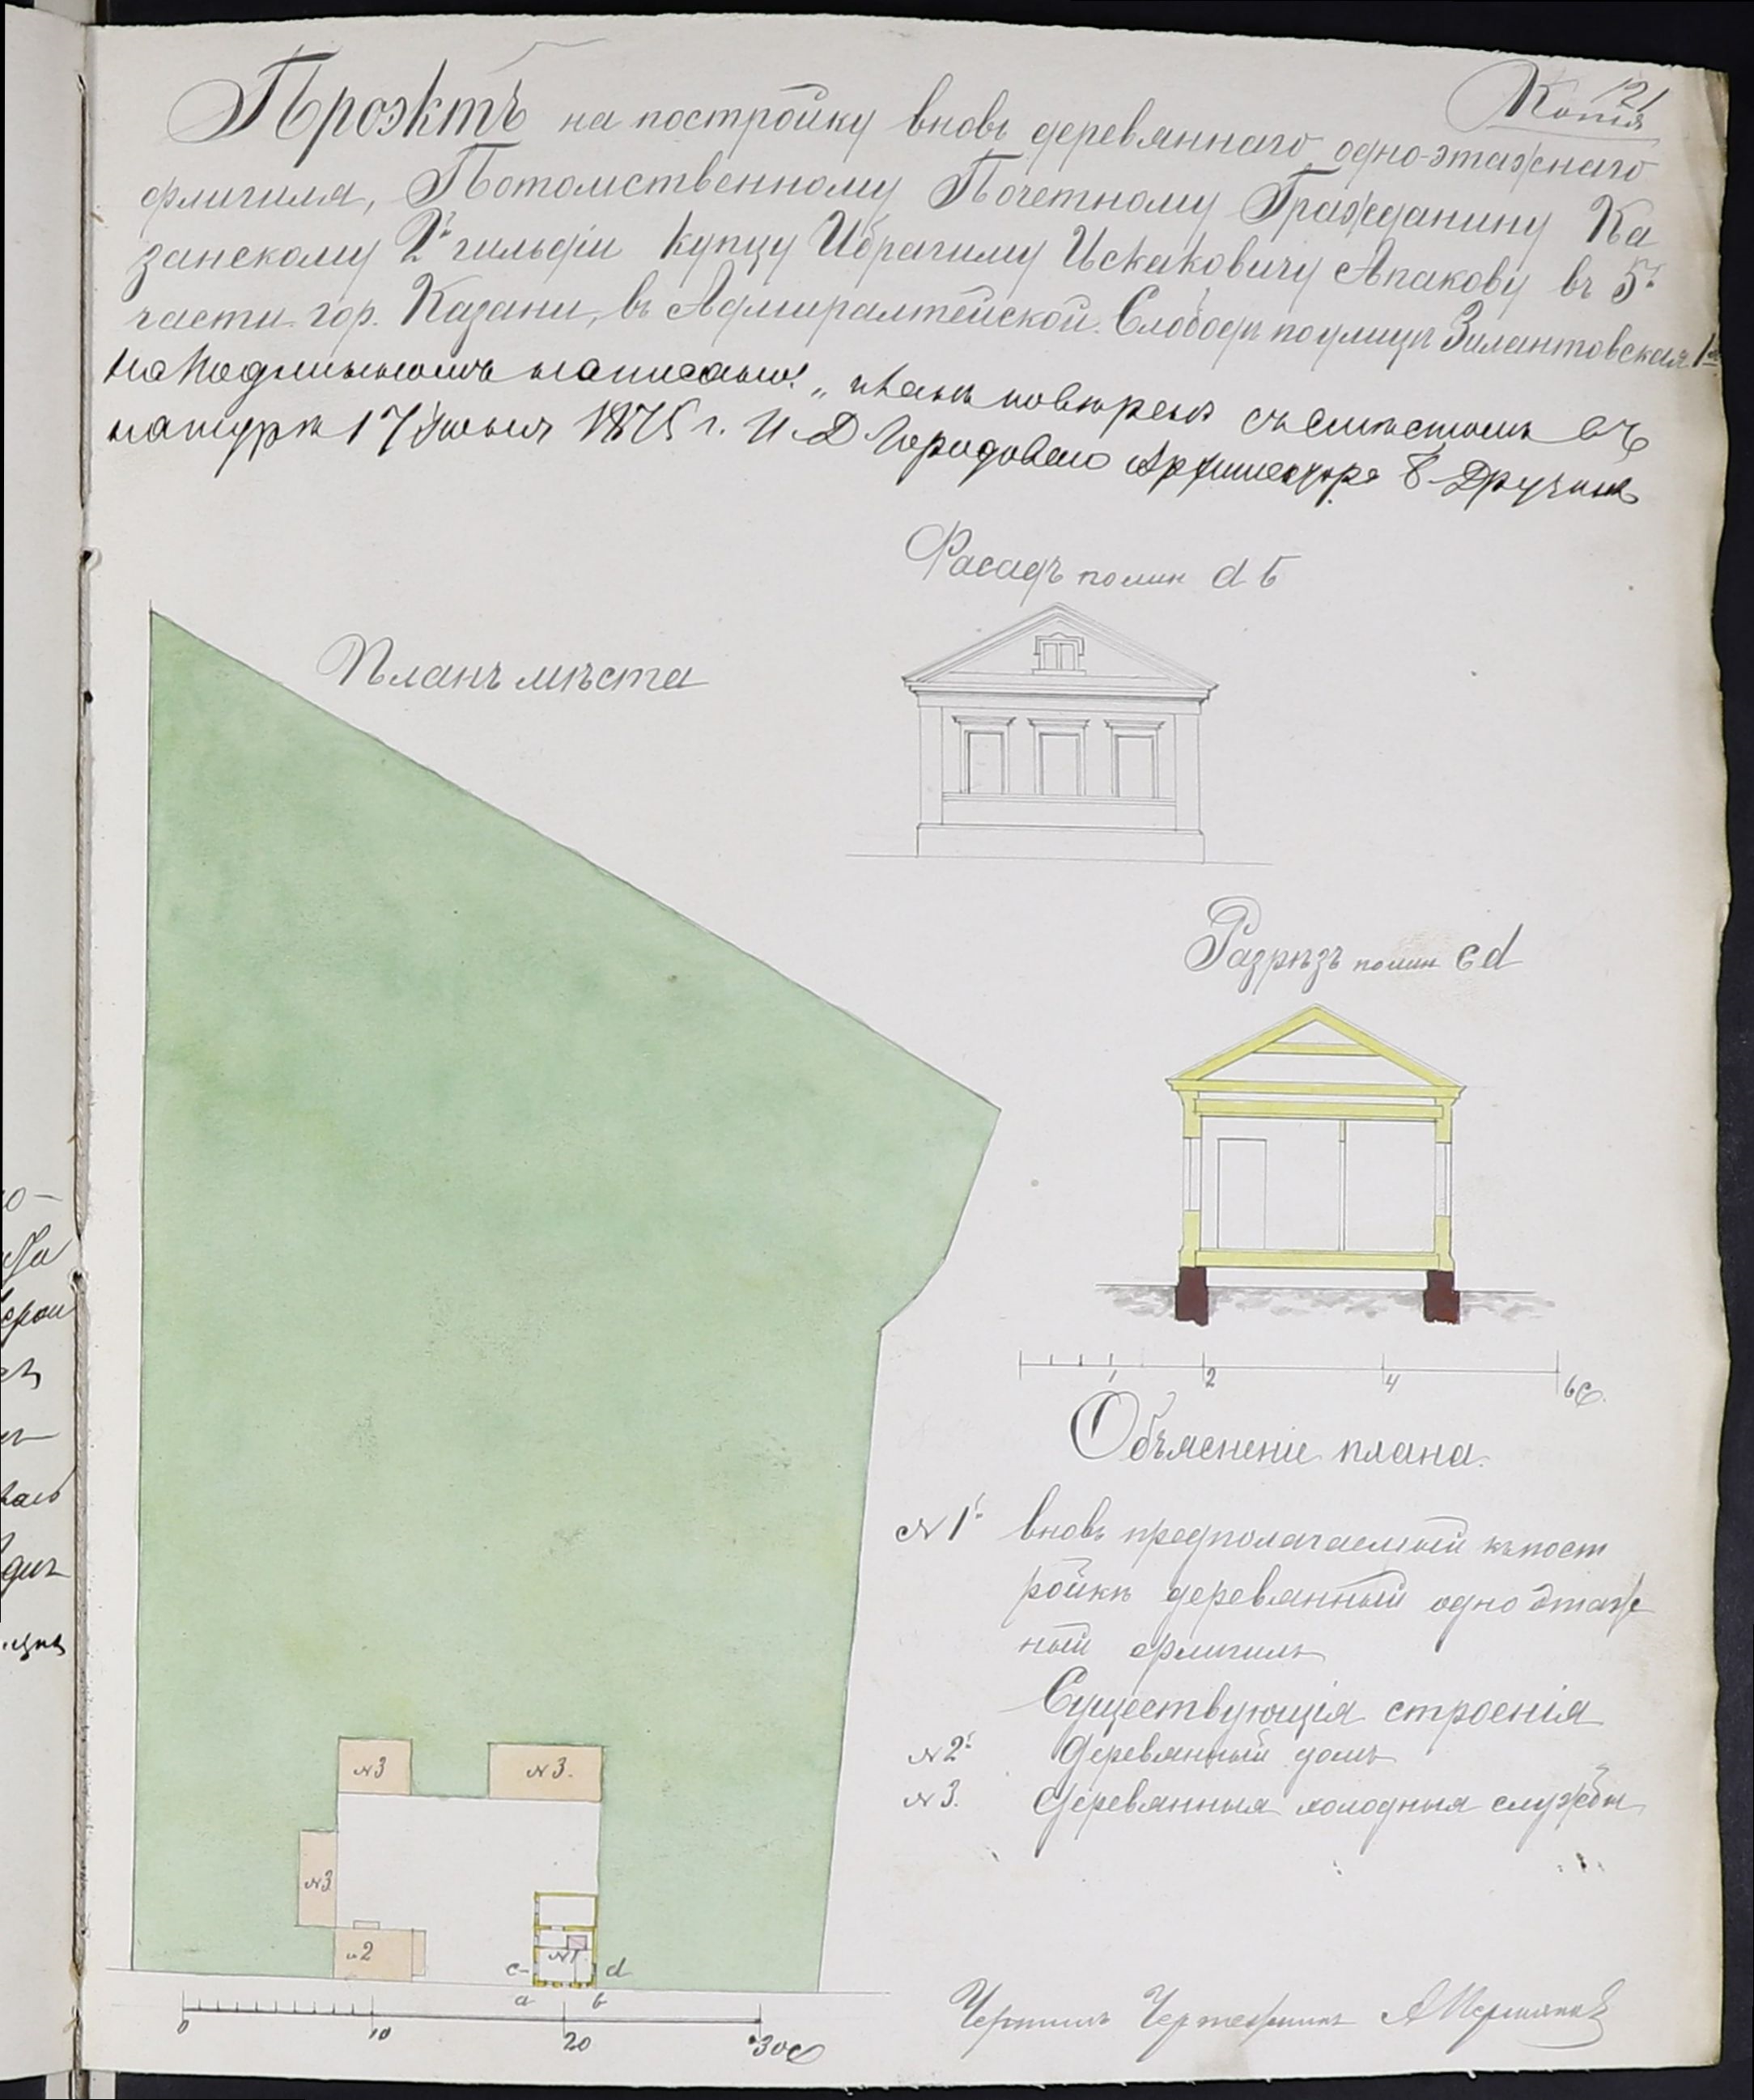 121
Копія
Проэктъ на постройку вновь деревяннаго одно-этажнаго
флигиля, Потомственному Почетному Гражданину Ка
занскому 2й гильдіи купцу Ибрагиму Искаковичу Апакову въ 5й
части гор. Казани, въ Адмиралтейской Слободѣ по улицѣ Зилантовская 1я
На подлинномъ написано: „планъ повѣренъ съ мѣстомъ въ
натурѣ 17 1875 г. И. Д. Городоваго Архитектора
Фасадъ по лин d б
Планъ мѣста
Разрѣзъ по лин c d
1 2 4 6 С.
Объясненіе плана.
№ 1й вновь предполагаемый къ пост
ройкѣ деревянный одно этаж
ный флигиль
Существующія строенія
№ 2й Деревянный домъ
№ 3. Деревянныя холодныя службы
№ 3 № 3.
№ 3
№ 2 № 1
c d
a b
0 10 20 30 С
Чертилъ Чертежникъ